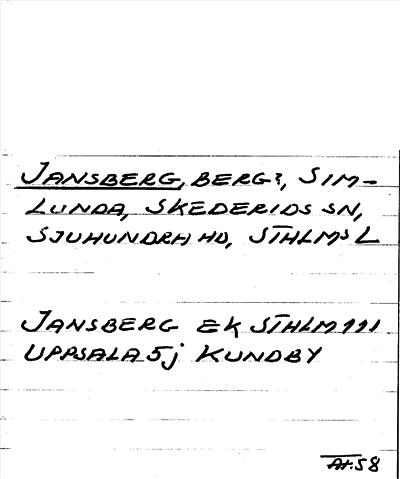 JANSBERG, BERG?, SIM-
LUNDA, SKEDERIDS SN,
SJUHUNDRA HD, STHLMS L
JANSBERG EK STHLM 111
UPPSALA 5j KUNDBY
AH.58